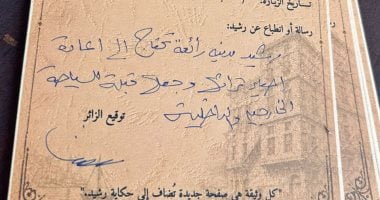 تاريخ الزيارة:
رسالة أو انطباع عن رشيد:
رشيد مدينه رائعة تحتاج إلى اعادة
احياء تراثها وجعلها قبلة للسياحة
الخارجية والداخلية
توقيع الزائر
"كل وثيقة هي صفحة جديدة تُضاف إلى حكاية رشيد."